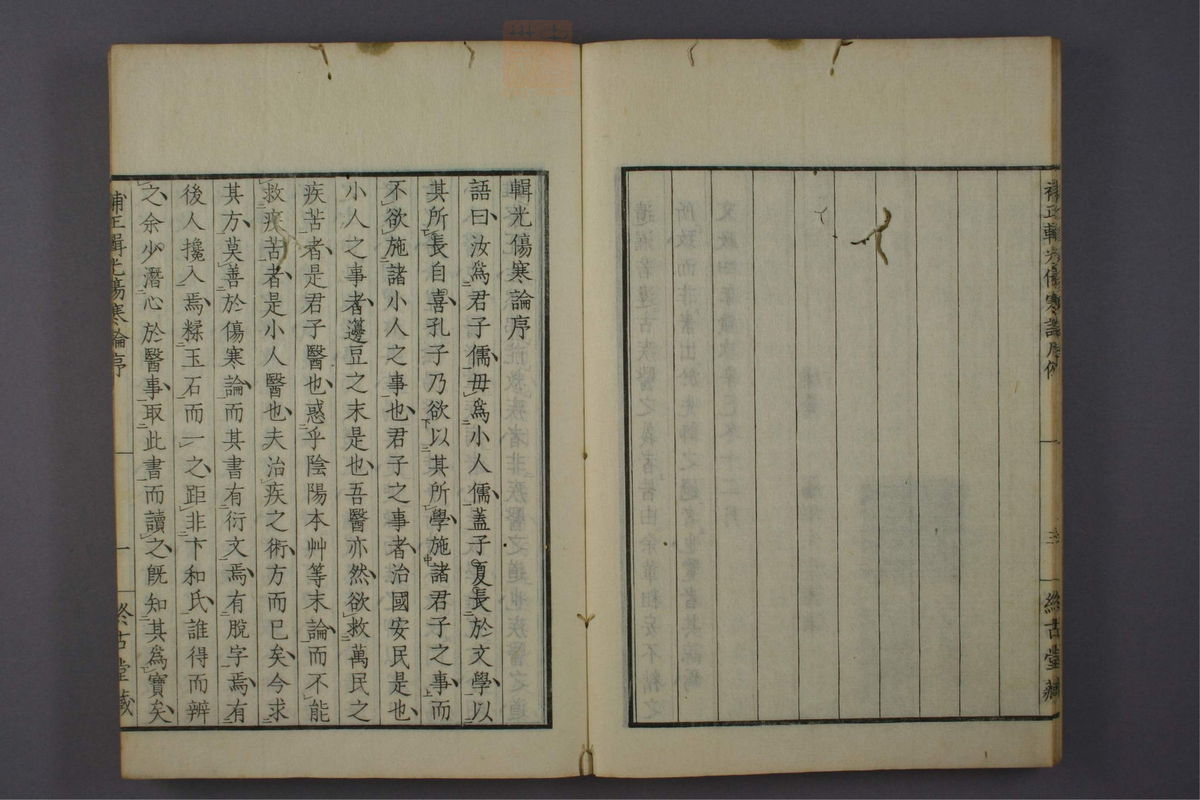 補正輯光傷寒論凡例
終古堂藏
輯光傷寒論序
語曰汝爲君子儒毋爲小人儒蓋子夏長於文學以
其所長自喜孔子乃欲以其所學施諸君子之事而
不欲施諸小人之事也君子之事者治國安民是也
小人之事者籩豆之末是也吾醫亦然欲救萬民之
疾苦者是君子醫也惑乎陰陽本艸等末論而不能
救疾苦者是小人醫也夫治疾之術方而已矣今求
其方莫善於傷寒論而其書有衍文焉有脫字焉有
後人攙入焉糅玉石而一之距非卞和氏誰得而辨
之余少潛心於醫事取此書而讀之既知其爲寶矣
補正輯光傷寒論序
一
終古堂藏